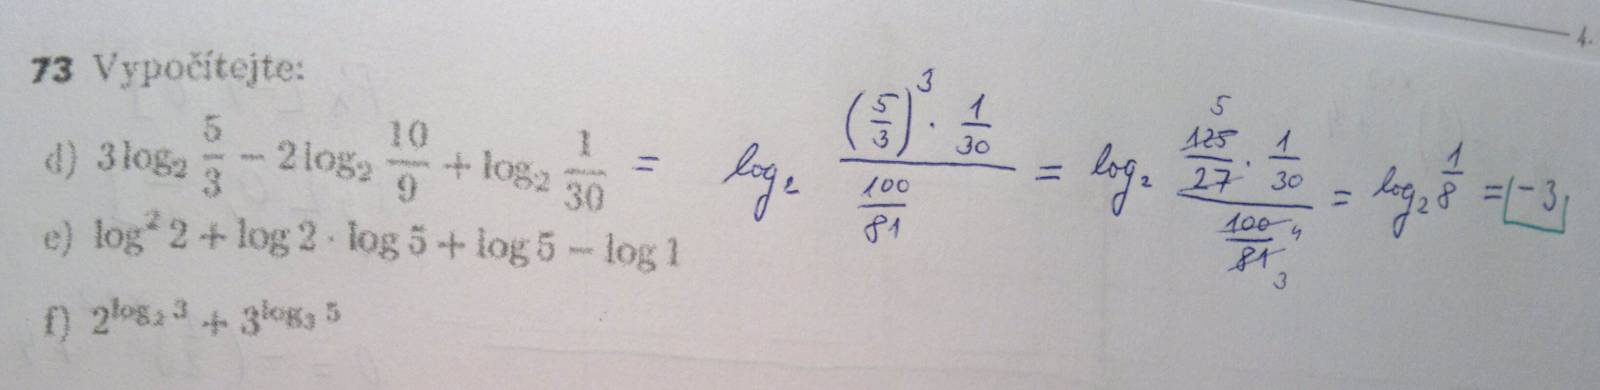 4.
73 Vypočítejte:
d) 3 log₂ 5/3 − 2 log₂ 10/9 + log₂ 1/30 = log₂ ((5/3)³ · 1/30)/(100/81) = log₂ (125/27 · 1/30)/(100/81) 5 4 3 = log₂ 1/8 = -3
e) log² 2 + log 2 · log 5 + log 5 − log 1
f) 2^(log₂ 3) + 3^(log₃ 5)